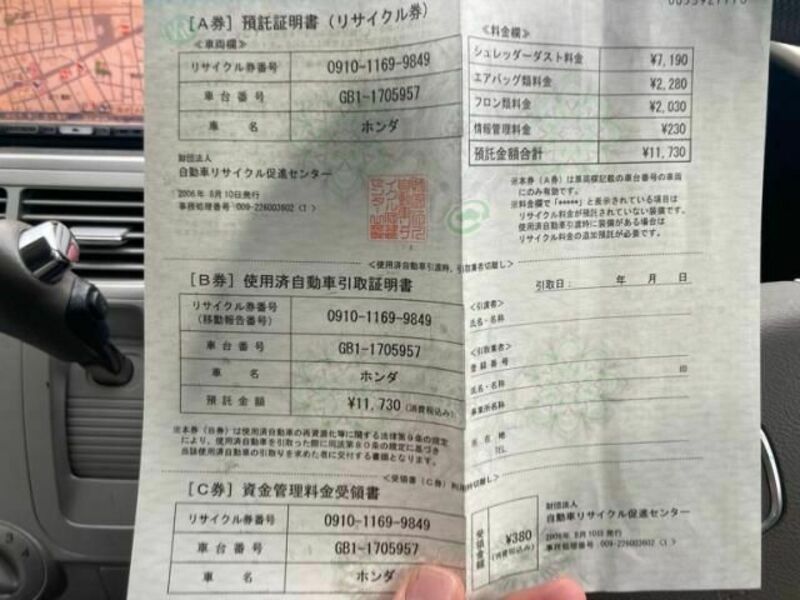 ［A券］預託証明書（リサイクル券）
≪車両欄≫
リサイクル券番号 0910-1169-9849
車台番号 GB1-1705957
車名 ホンダ
財団法人
自動車リサイクル促進センター
2006年 8月10日発行
事務処理番号：009-226003602〈1〉
≪料金欄≫
シュレッダーダスト料金 ¥7,190
エアバッグ類料金 ¥2,280
フロン類料金 ¥2,030
情報管理料金 ¥230
預託金額合計 ¥11,730
※本券（A券）は車両欄記載の車台番号の車両
にのみ有効です。
※料金欄で「*****」と表示されている項目は
リサイクル料金が預託されていない装備です。
使用済自動車引渡時に装備がある場合は
リサイクル料金の追加預託が必要です。
＜使用済自動車引渡時、引取業者切離し＞
［B券］使用済自動車引取証明書
リサイクル券番号
（移動報告番号） 0910-1169-9849
車台番号 GB1-1705957
車名 ホンダ
預託金額 ¥11,730（消費税込み）
※本券（B券）は使用済自動車の再資源化等に関する法律第9条の規定
により、使用済自動車を引取った際に同法第80条の規定に基づき
当該使用済自動車の引取りを求めた者に交付する書面となります。
引取日： 年 月 日
＜引渡者＞
氏名・名称
＜引取業者＞
登録番号
印
氏名・名称
事業所名称
所在地
TEL
＜受領書（C券）利用時切離し＞
［C券］資金管理料金受領書
リサイクル券番号 0910-1169-9849
車台番号 GB1-1705957
車名 ホンダ
受領金額 ¥380
（消費税込み）
財団法人
自動車リサイクル促進センター
2006年 8月10日発行
事務処理番号：009-226003602〈1〉
3
4